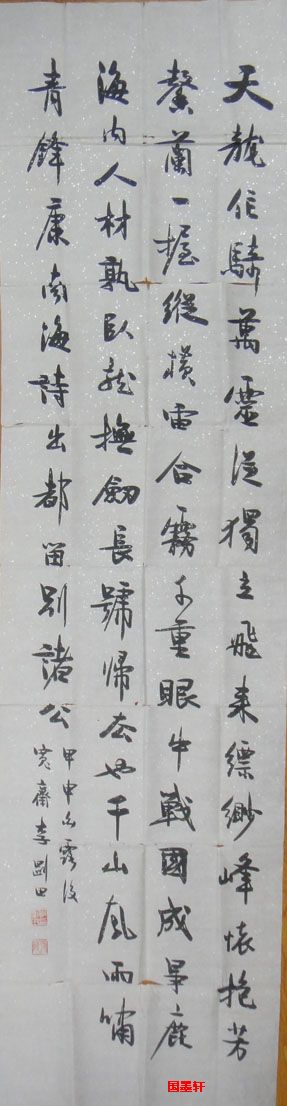 天龍作騎萬靈從獨立飛來縹緲峰懷抱芳
馨蘭一握縱橫宙合霧千重眼中戰國成爭鹿
海內人材孰臥龍撫劍長號歸去也千山風雨嘯
青鋒康南海詩出都留別諸公
甲申白露後
寬齋李剛田
国墨轩